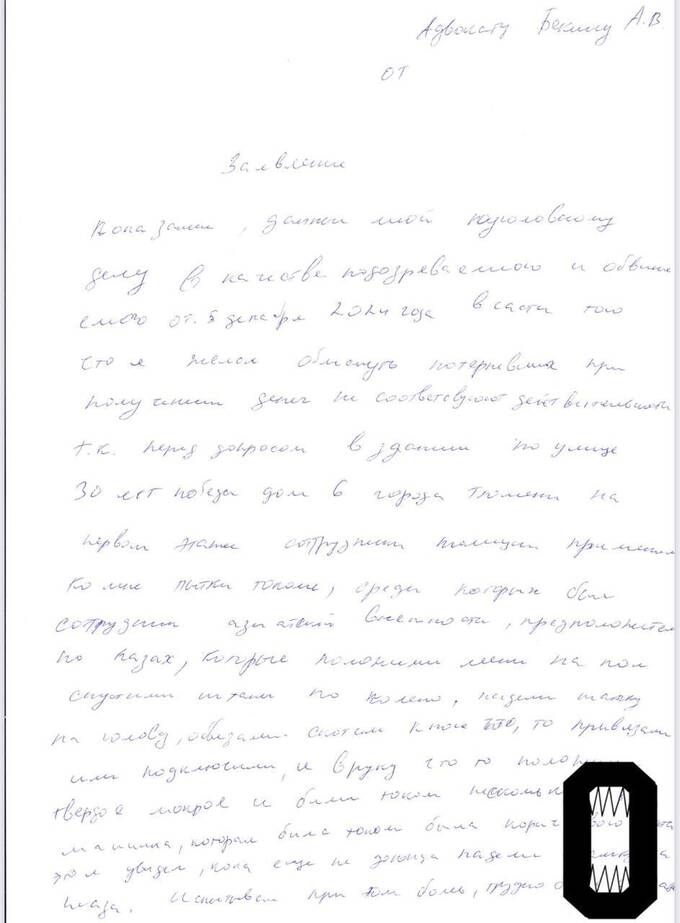 Адвокату Бекшину А.В.
от
Заявление
Показания, данные мной по уголовному
делу в качестве подозреваемого и обвин
емого от 5 декабря 2024 года в части того
что я желал обмануть потерпевших при
получении денег не соответствуют действительности
т.к. перед допросом в здании по улице
30 лет победы дом 6 города Тюмени на
первом этаже сотрудники полиции применяли
ко мне пытки током, среди которых был
сотрудник азиатской внешности, предположител
но казах, которые положили меня на пол
спустили штаны по колено, надели шапку
на голову, обвязали скотчем к ноге что, то привязали
или подключили, и в руку что то положили
твердое мокрое и били током
машинка, которая била током была
этом увидел, пока еще не надели
глаза. Испытывал при том боль, трудно